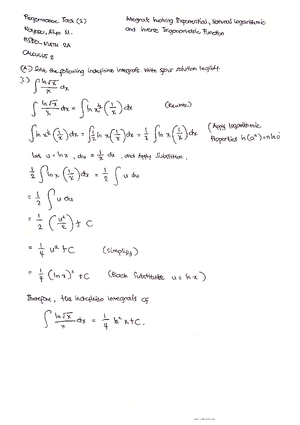 Performance Task (2)
Integrals Involving Exponential, Natural Logarithmic
and Inverse Trigonometric Function
MATH 2A
Calculus 2
(A.) Solve the following indefinite integrals. Write your solution legibly.
1.) ∫ ln√x / x dx
∫ ln√x / x dx = ∫ ln x^½ (1/x) dx (Rewrite)
∫ ln x^½ (1/x) dx = ∫ ½ ln x (1/x) dx = ½ ∫ ln x (1/x) dx (Apply logarithmic
Properties
Let u = ln x, du = 1/x dx, and Apply Substitution,
½ ∫ ln x (1/x) dx = ½ ∫ u
= ½ ∫ u du
= ½ (u²/2) + C
= ¼ u² + C (Simplify)
= ¼ (ln x)² + C (Back Substitute u = ln x)
Therefore, the indefinite integrals of
∫ ln√x / x dx = ¼ ln² x + C.